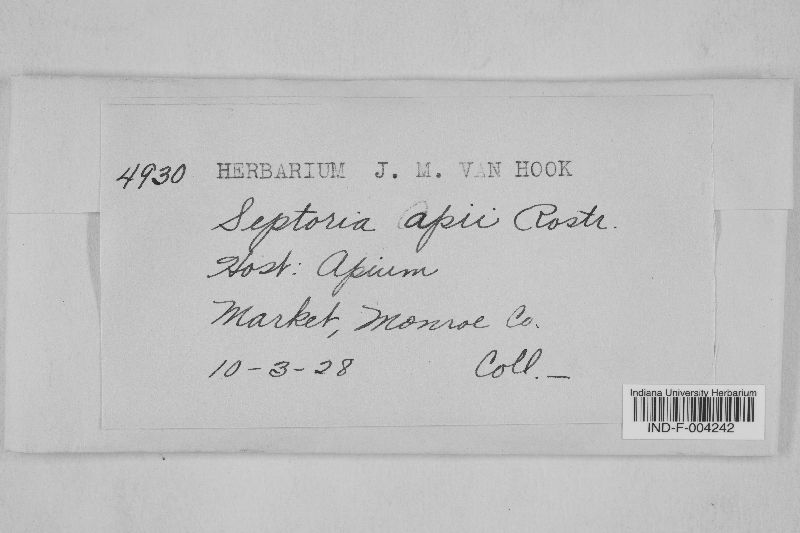 4930 HERBARIUM J. M. VAN HOOK
Septoria apii Rostr.
Host: Apium
Market, Monroe Co.
10-3-28 Coll. —
Indiana University Herbarium
IND-F-004242